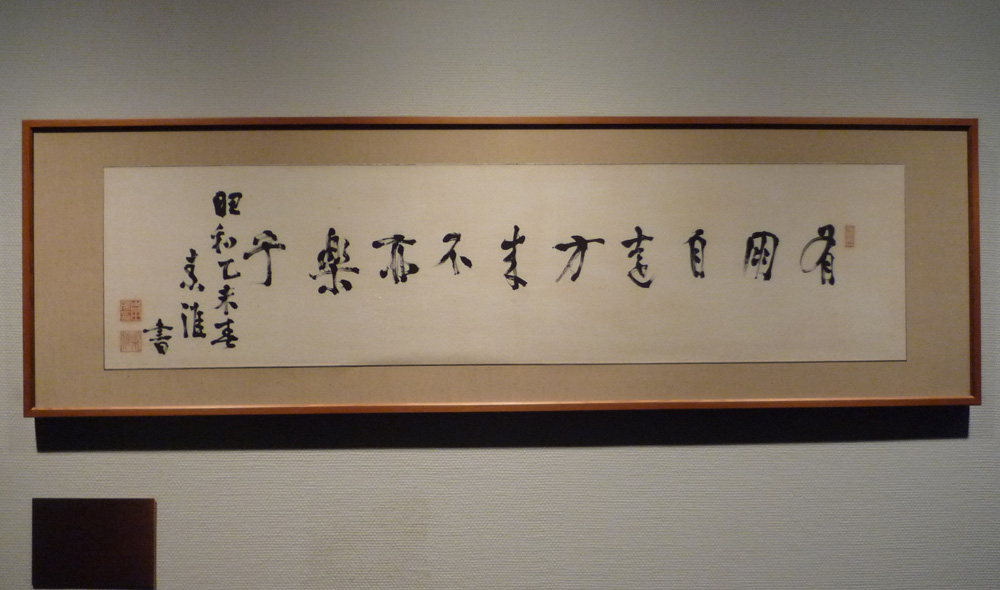 有朋自遠方来不亦楽乎
昭和乙未春
素淮
書